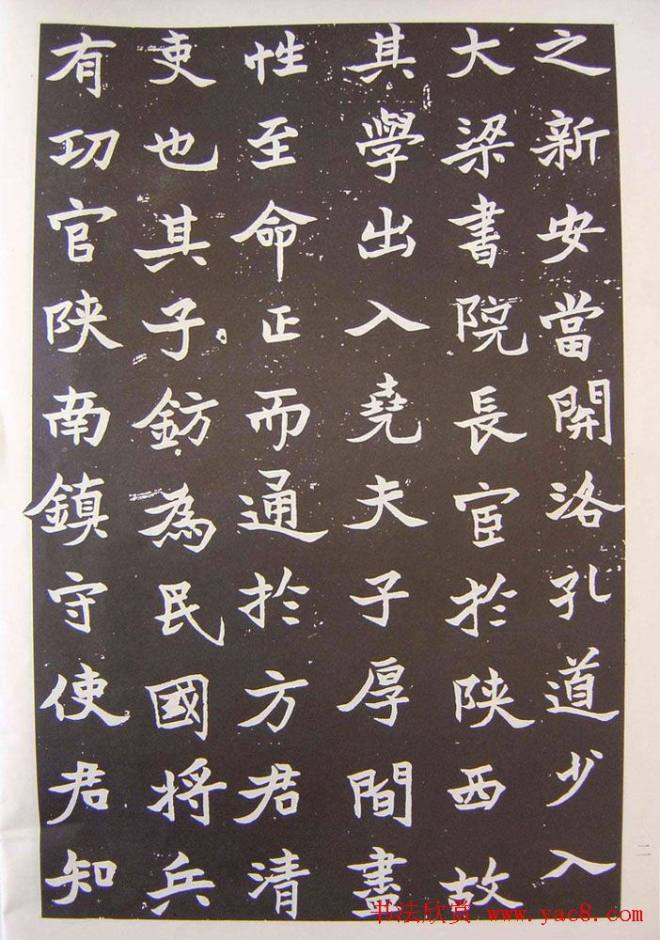 之新安當開洛孔道少入
大梁書院長宦於陝西故
其學出入堯夫子厚間盡
性至命正而通於方君清
吏也其子鈁為民國將兵
有功官陝南鎮守使君知
二
书法欣赏 www.yac8.com